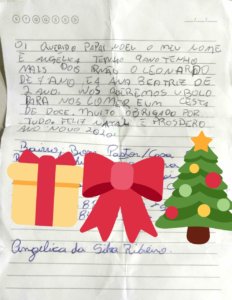 OI QUERIDO PAPAI NOEL O MEU NOME
E ANGELICA TENHO 9 ANO TENHO
MAIS DOIS IRMÃO O LEONARDO
DE 4 ANO, E A ANA BEATRIZ DE
2 ANO. NOS QUEREMOS UM BOLO
PARA NOS COMER E UM CESTA
DE DOCE, MUITO OBRIGADO POR
TUDO, FELIZ NATAL E PROSPERO
ANO NOVO 2020.
Bairro, Bom Pastor/
Angelica da Silva Ribeiro